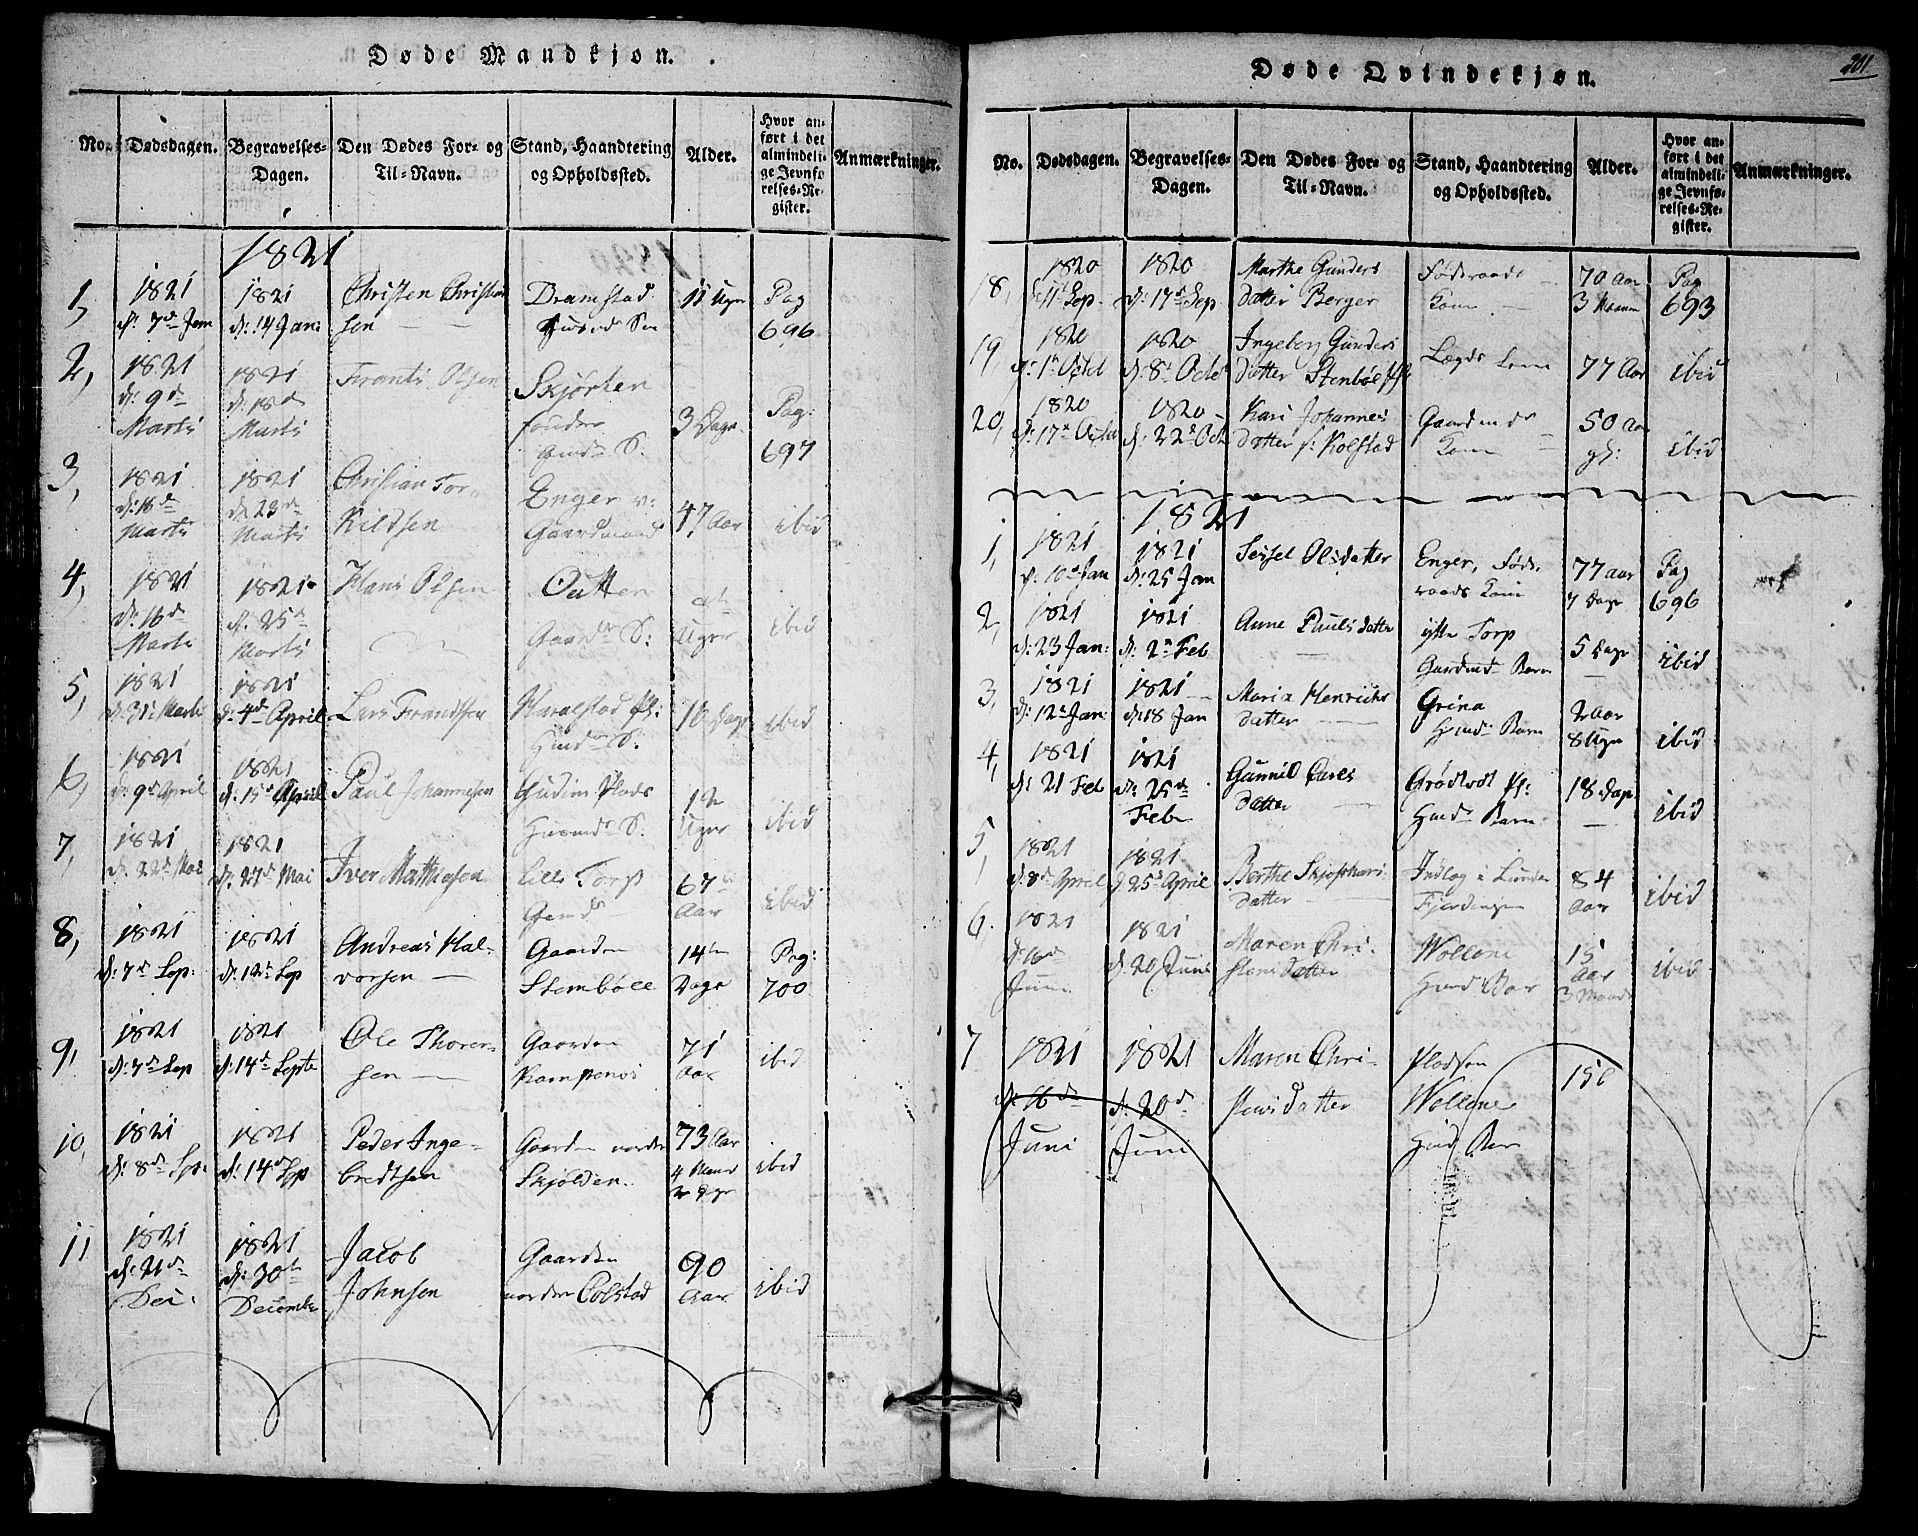 Døde Mandkjøn.
No. Dødsdagen. Begravelses-Dagen. Den Dødes For- og Til-Navn. Stand, Haandtering og Opholdssted. Alder. Hvor anført i det almindelige Jevnførelses-Register. Anmærkninger.
1821
1, 1821 d: 7de Jan 1821 d: 14 Jan: Christen Christiansen Dramstad Huusmds Søn 11 Uger Pag 696
2, 1821 d: 9de Marts 1821 d: 18de Marts Frants Olsen Skjørten 3 Dage Pag: 697
3, 1821 d: 16de Marts 1821 d. 23de Marts Christian Torkildsen Enger v: Gaardmand 47 Aar ibid
4, 1821 d: 16de Marts 1821 d: 25de Marts Hans Olsen Outten Gaardm S: Uger ibid
5, 1821 d: 31te Marts 1821 d: 4de April Lars Frandsen Haralstad Pl: Hmds S. 10 Dage ibid
6, 1821 d: 9de April 1821 d: 15de April Paul Johannesen Gudim Plads Huusmds S. 12 Uger ibid
7, 1821 d. 22de Mai 1821 d: 27de Mai Iver Mathiesen Lille Torp Gmd 67 Aar ibid
8, 1821 d: 7de Sep: 1821 d: 12te Sep Andreas Halvorsen Gaarden Stembøll 14ten Dage Pag: 700
9, 1821 d: 7de Sep 1821 d: 14de Septe Ole Thorensen Gaarden Kampenes 71 Aar ibid
10, 1821 d: 8de Sep. 1821 d: 14de Sep Peder Ingebredtsen Gaarden nordre Skjølden. 73 Aar 4 Maand 2 Dage ibid
11 1821 d: 21de Dec. 1821 d: 30te December Jacob Johnsen Gaarden nordre Colstad 90 Aar ibid
Døde Qvindekjøn.
201
No. Dødsdagen. Begravelses-Dagen. Den Dødes For- og Til-Navn. Stand, Haandtering og Opholdssted. Alder. Hvor anført i det almindelige Jevnførelses-Register. Anmærkninger.
18, 1820 d: 11te Sep 1820 d: 17de Sep Marthe Gunders datter Berger Føderaads Kone 70 Aar 3 Maan Pag 693
19, 1820 d: 1te Octob 1820 d: 8de Octob Ingeborg Gunders datter Stenbøl Lægds Lem 77 Aar ibid
20, 1820 d: 17de Octob 1820 d. 22de Oct Kari Johannes datter s: Kolstad Gaardmds Kone 50 Aar gl: ibid
1821
1, 1821 d. 10de Jan 1821 d: 25 Jan Sessel Olsdatter Enger, Føderaads Kone 77 aar 7 Dage Pag 696
2, 1821 d: 23 Jan: 1821 d: 2de Feb Anne Pauls datter ytte Torp Gardmd Barn 5 Dage ibid
3, 1821 d: 12te Jan: 1821 d: 18 Jan Maria Henriks datter Grina Hmds Barn 2 Aar 8 Uger ibid
4, 1821 d: 21 Feb 1821 d: 25de Feb Gunnild Lares datter Grødtvdt Pl: Hmds Barn 18 Dage ibid
5, 1821 d. 8de April 1821 d. 25de April Berthe datter Indlag i Lunder Fjerdingen 84 Aar ibid
6. 1821 d. 16de Juni 1821 d. 20 Juni Maren Christens datter Wollene Hmds Bar 15 Aar 3 Maand ibid
7 1821 d: 16de Juni 1821 d. 20de Juni Maren Christensdatter Pladsen Wollene Hmd Bar 15